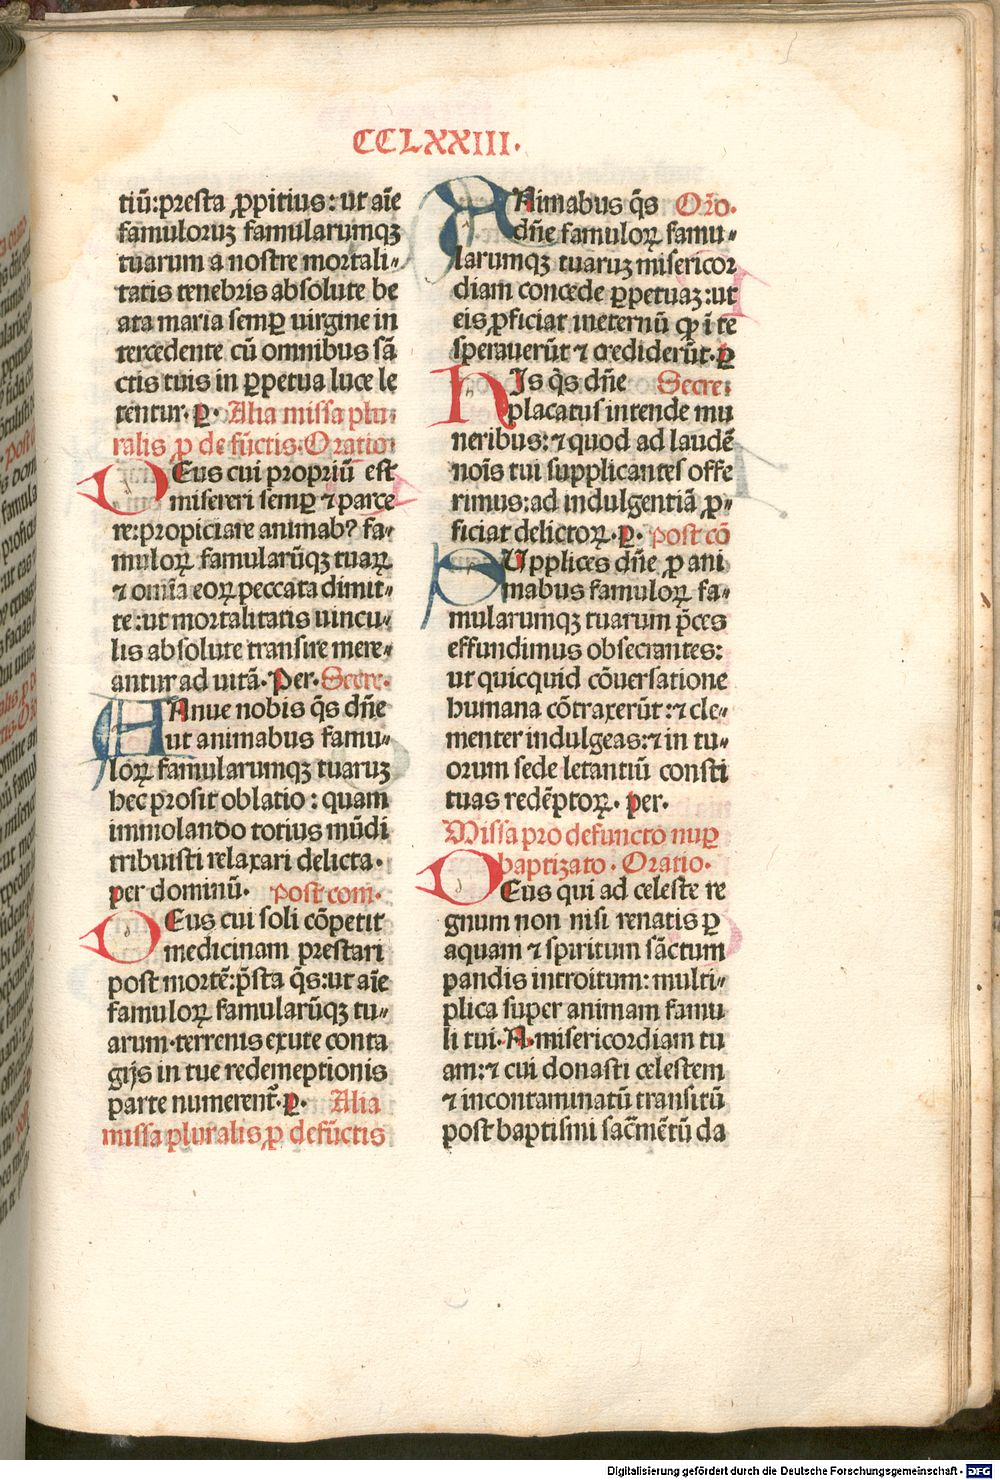 CCLXXIII.
tiū:presta ꝓpitius: ut aīe
famuloruꝫ famularumqꝫ
tuarum a nostre mortali-
tatis tenebris absolute be
ata maria semꝑ uirgine in
tercedente cū omnibus sā
ctis tuis in ꝑpetua luce le
tentur. ꝑ. Alia missa plu
ralis ꝓ defūctis. Oratio
DEus cui propriū est
misereri semꝑ ⁊ parce
re:propiciare animabꝰ fa-
muloꝝ famularūqꝫ tuaꝝ
⁊ om̄ia eoꝝ peccata dimit-
te:ut mortalitatis uincu-
lis absolute transire mere-
antur ad uitā. Per. Secre.
AAnue nobis q̄s dn̄e
ut animabus famu-
loꝝ famularumqꝫ tuaruꝫ
hec prosit oblatio: quam
immolando totius mūdi
tribuisti relaxari delicta.
per dominū. Post com.
DEus cui soli cōpetit
medicinam prestari
post mortē:p̄sta q̄s:ut aīe
famuloꝝ famularūqꝫ tu-
arum.terrenis exute conta
gijs in tue redemeptionis
parte numerent᷑. ꝑ. Alia
missa pluralis ꝓ defūctis
ANimabus q̄s Oro.
dn̄e famuloꝝ famu-
larumqꝫ tuaruꝫ misericor
diam concede ꝑpetuaꝫ:ut
eis ꝓficiat ineternū ꝙ ī te
sperauerūt ⁊ crediderūt. ꝑ
HIs q̄s dn̄e Secre:
placatus intende mu
neribus:⁊ quod ad laudē
noīs tui supplicantes offe
rimus:ad indulgentiā ꝓ-
ficiat delictoꝝ. ꝑ. Post cō
SUpplices dn̄e ꝓ ani
mabus famuloꝝ fa-
mularumqꝫ tuarum p̄ces
effundimus obsecrantes:
ut quicquid cōuersatione
humana cōtraxerūt:⁊ cle-
menter indulgeas:⁊ in tu-
orum sede letantiū consti
tuas redēptoꝝ. Per.
Missa pro defuncto nuꝑ
baptizato. Oratio.
DEus qui ad celeste re
gnum non nisi renatis ꝑ
aquam ⁊ spiritum sāctum
pandis introitum: multi-
plica super animam famu
li tui. N. misericordiam tu
am:⁊ cui donasti celestem
⁊ incontaminatū transitū
post baptismi sac̄mētū da
Digitalisierung gefördert durch die Deutsche Forschungsgemeinschaft - DFG